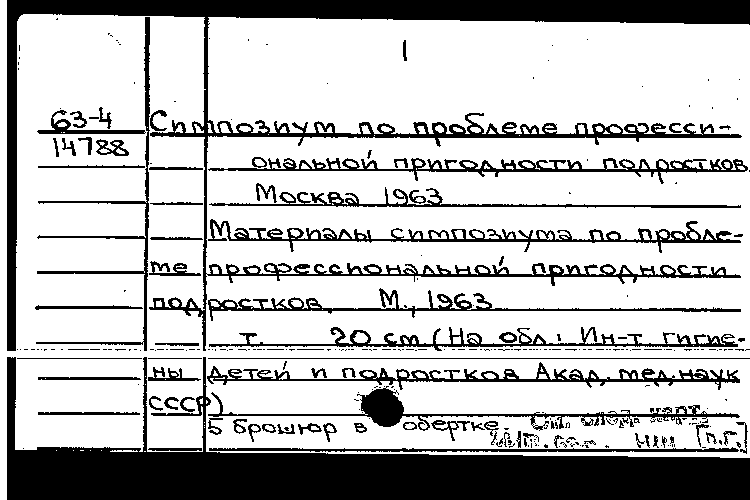 1
63-4
14788
Симпозиум по проблеме професси-
ональной пригодности подростков
Москва 1963
Материалы симпозиума по пробле-
ме профессиональной пригодности
подростков. М., 1963
т. 20 см (На обл: Ин-т гигие-
ны детей и подростков Акад. мед. наук
СССР).
5 брошюр в обертке. См. след. карт.
[п.г.]